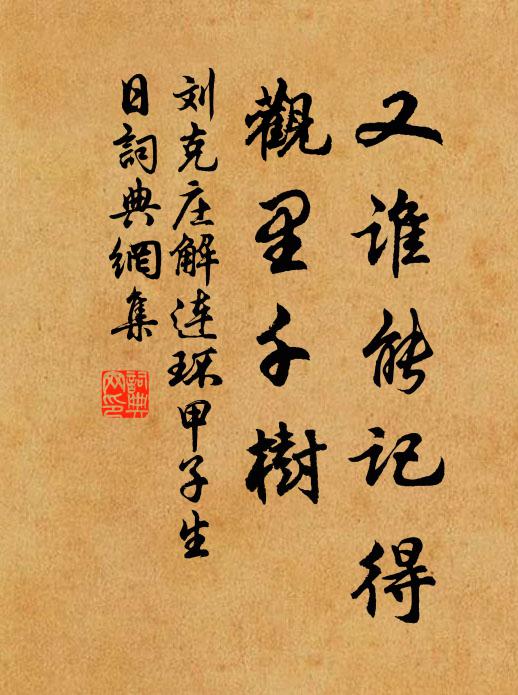 又谁能记得
觀里千樹
刘克庄解连环甲子生
日詞典網集
詞典網印